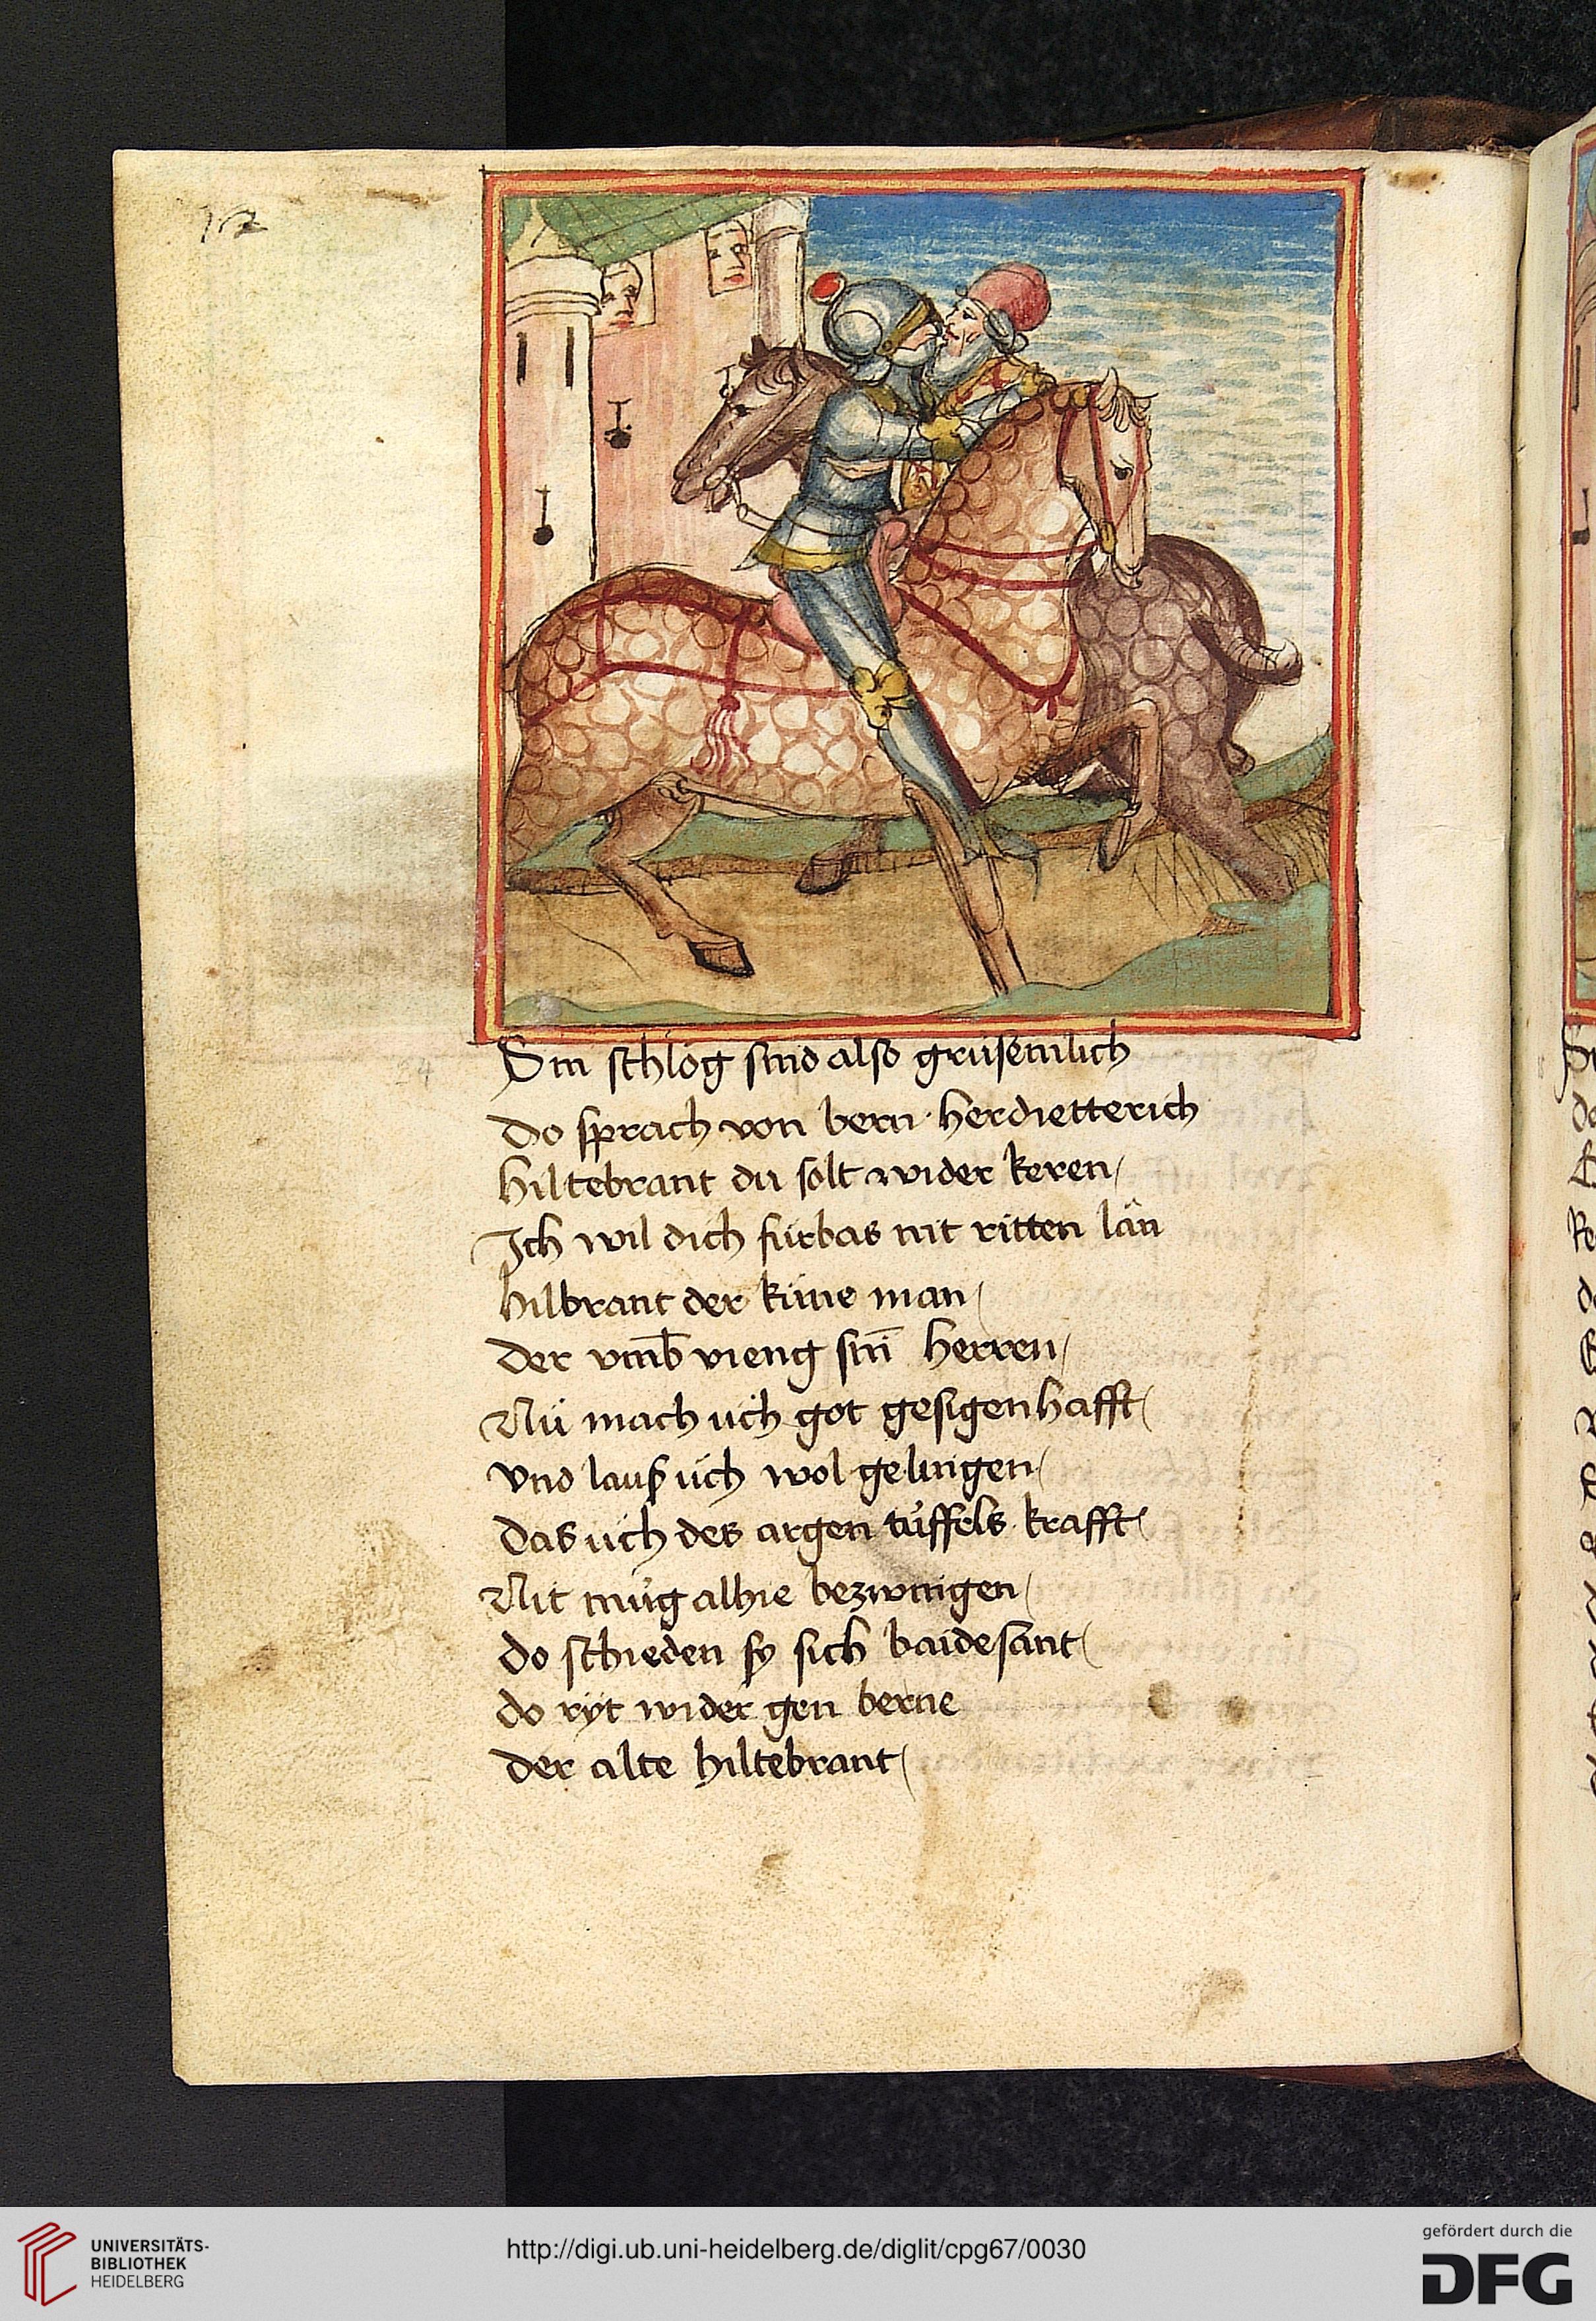 12
Sin schlög sind also grüsemlich
Do sprach von bern · herdietterich
hiltebrant du solt wider keren /
Ich wil dich fürbas nit ritten län
hilbrant der küne man /
der vmb vieng sin̄ herren /
Nü mach üch got gesigenhafft /
vnd lauß üch wol gelingen /
Das üch des argen tüffels krafft /
Nit müg alhie bezwingen /
do schieden sy sich baidesant /
do ryt wider gen berne
der alte hiltebrant /
UNIVERSITÄTS-
BIBLIOTHEK
HEIDELBERG
http://digi.ub.uni-heidelberg.de/diglit/cpg67/0030
gefördert durch die
DFG